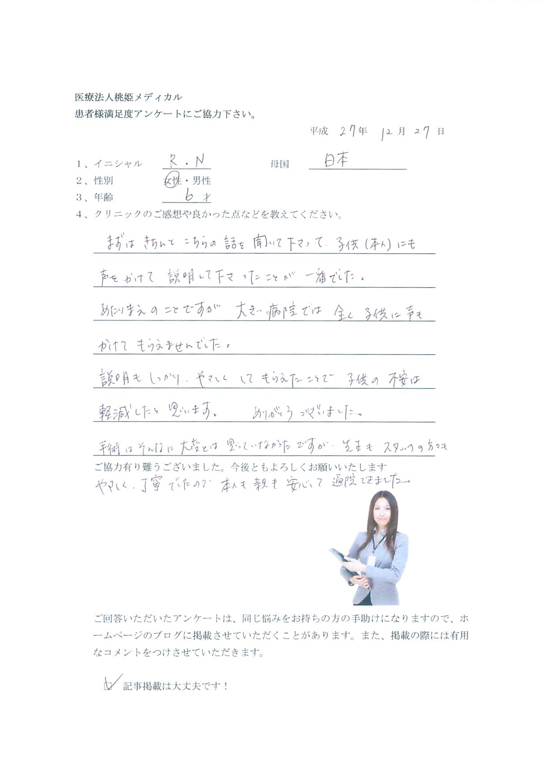 医療法人桃姫メディカル
患者様満足度アンケートにご協力下さい。
平成 27年 12月 27日
1、イニシャル R.N 母国 日本
2、性別 女性・男性
3、年齢 6才
4、クリニックのご感想や良かった点などを教えてください。
まずは きちんと こちらの 話を 聞いて下さって、子供(本人)にも
声をかけて 説明して下さったことが 一番でした。
あたりまえのことですが 大きい病院では 全く 子供に声も
かけて もらえませんでした。
説明も しっかり、やさしく して もらえたことで 子供の 不安は
軽減したと 思います。 ありがとう ございました。
手術は そんなに 大変とは 思っていなかった ですが、先生も スタッフの方々も
ご協力有り難うございました。今後ともよろしくお願いいたします
やさしく、丁寧でしたので 本人も 親も 安心して 通院できました。
ご回答いただいたアンケートは、同じ悩みをお持ちの方の手助けになりますので、ホ
ームページのブログに掲載させていただくことがあります。また、掲載の際には有用
なコメントをつけさせていただきます。
☑ 記事掲載は大丈夫です！